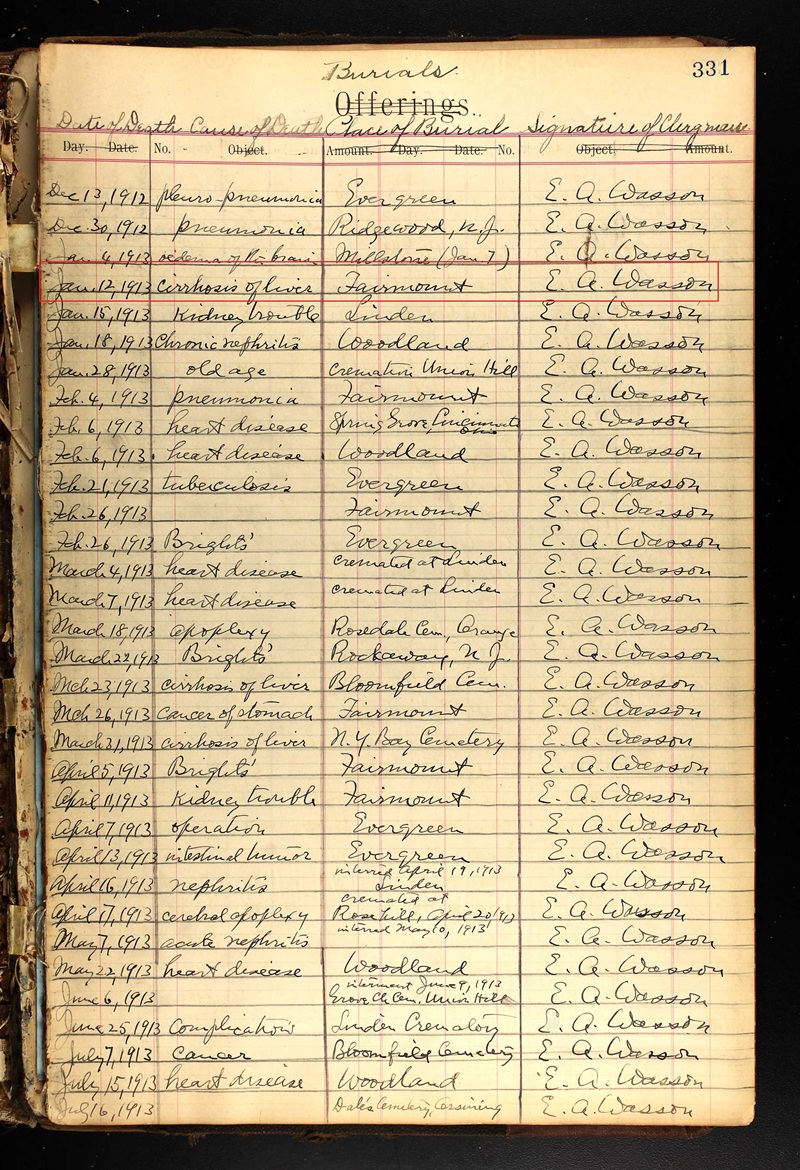 Burials.
331
Offerings.
Date of Death Cause of Death Place of Burial Signature of Clergyman
Day. Date. No. Object. Amount. Day. Date. No. Object. Amount.
Dec 13, 1912 pleuro-pneumonia Evergreen E. A. Wasson
Dec. 30, 1912 pneumonia Ridgewood, N.J. E. A. Wasson
Jan. 4, 1913 oedema of the brain Millstone (Jan. 7) E. A. Wasson
Jan. 12, 1913 cirrhosis of liver Fairmount E. A. Wasson
Jan. 15, 1913 Kidney trouble Linden E. A. Wasson
Jan. 18, 1913 Chronic nephritis Woodland E. A. Wasson
Jan. 28, 1913 old age cremation Union Hill E. A. Wasson
Feb. 4, 1913 pneumonia Fairmount E. A. Wasson
Feb. 6, 1913 heart disease Spring Grove, Cincinnati Ohio E. A. Wasson
Feb. 6, 1913 heart disease Woodland E. A. Wasson
Feb. 21, 1913 tuberculosis Evergreen E. A. Wasson
Feb. 26, 1913 Fairmount E. A. Wasson
Feb. 26, 1913 Brights' Evergreen E. A. Wasson
March 4, 1913 heart disease cremated at Linden E. A. Wasson
March 7, 1913 heart disease cremated at Linden E. A. Wasson
March 18, 1913 apoplexy Rosedale Cem., Orange E. A. Wasson
March 22, 1913 Brights' Rockaway, N.J. E. A. Wasson
Mch 23, 1913 cirrhosis of liver Bloomfield Cem. E. A. Wasson
Mch 26, 1913 cancer of stomach Fairmount E. A. Wasson
March 31, 1913 cirrhosis of liver N.Y. Bay Cemetery E. A. Wasson
April 5, 1913 Brights' Fairmount E. A. Wasson
April 11, 1913 Kidney trouble Fairmount E. A. Wasson
April 7, 1913 operation Evergreen E. A. Wasson
April 13, 1913 intestinal tumor Evergreen E. A. Wasson
interred April 19, 1913
April 16, 1913 nephritis Linden E. A. Wasson
cremated at
April 17, 1913 cerebral apoplexy Rose hill, April 20/913 E. A. Wasson
interred May 10, 1913
May 7, 1913 acute nephritis E. A. Wasson
May 22, 1913 heart disease Woodland E. A. Wasson
interment June 9, 1913
June 6, 1913 Grove Ch. Cem., Union Hill E. A. Wasson
June 25, 1913 Complications Linden Crematory E. A. Wasson
July 7, 1913 cancer Bloomfield Cemetery E. A. Wasson
July 15, 1913 heart disease Woodland E. A. Wasson
July 16, 1913 Dale's Cemetery, Ossining E. A. Wasson